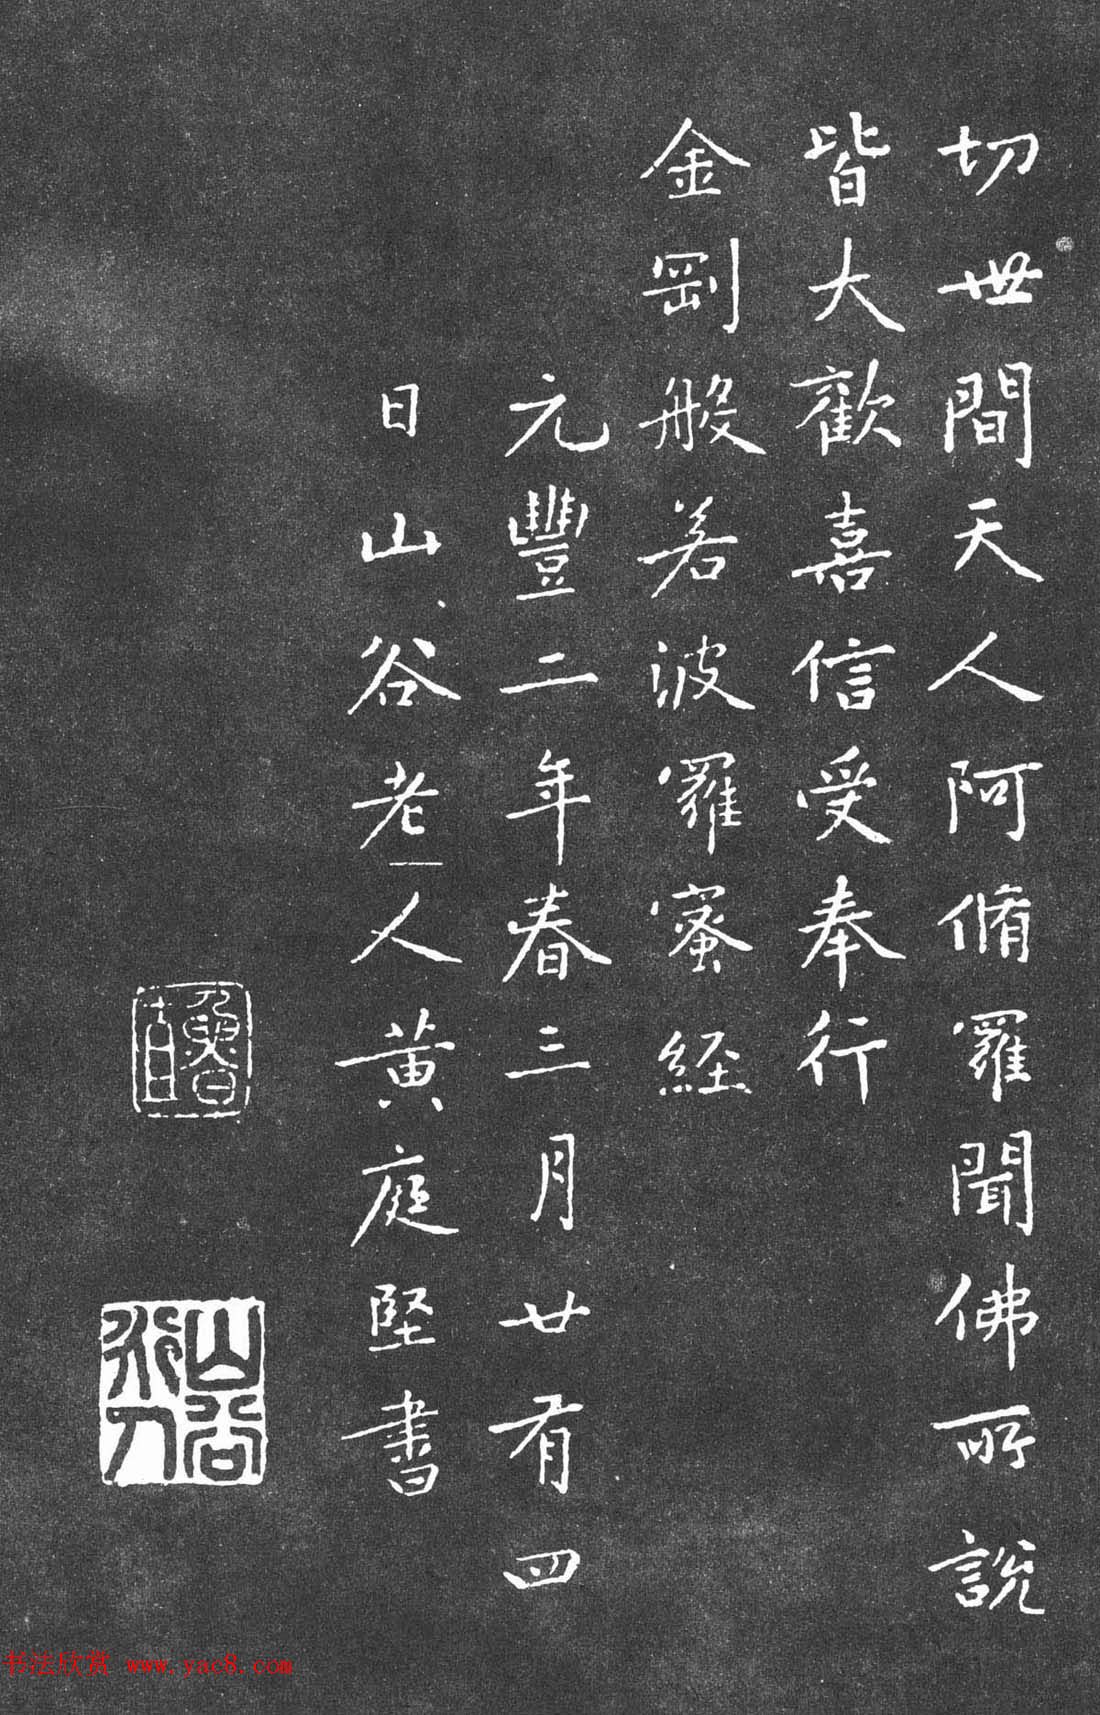 切世間天人阿脩羅聞佛所說
皆大歡喜信受奉行
金剛般若波羅蜜經
元豐二年春三月廿有四
日山谷老人黃庭堅書
书法欣赏 www.yac8.com